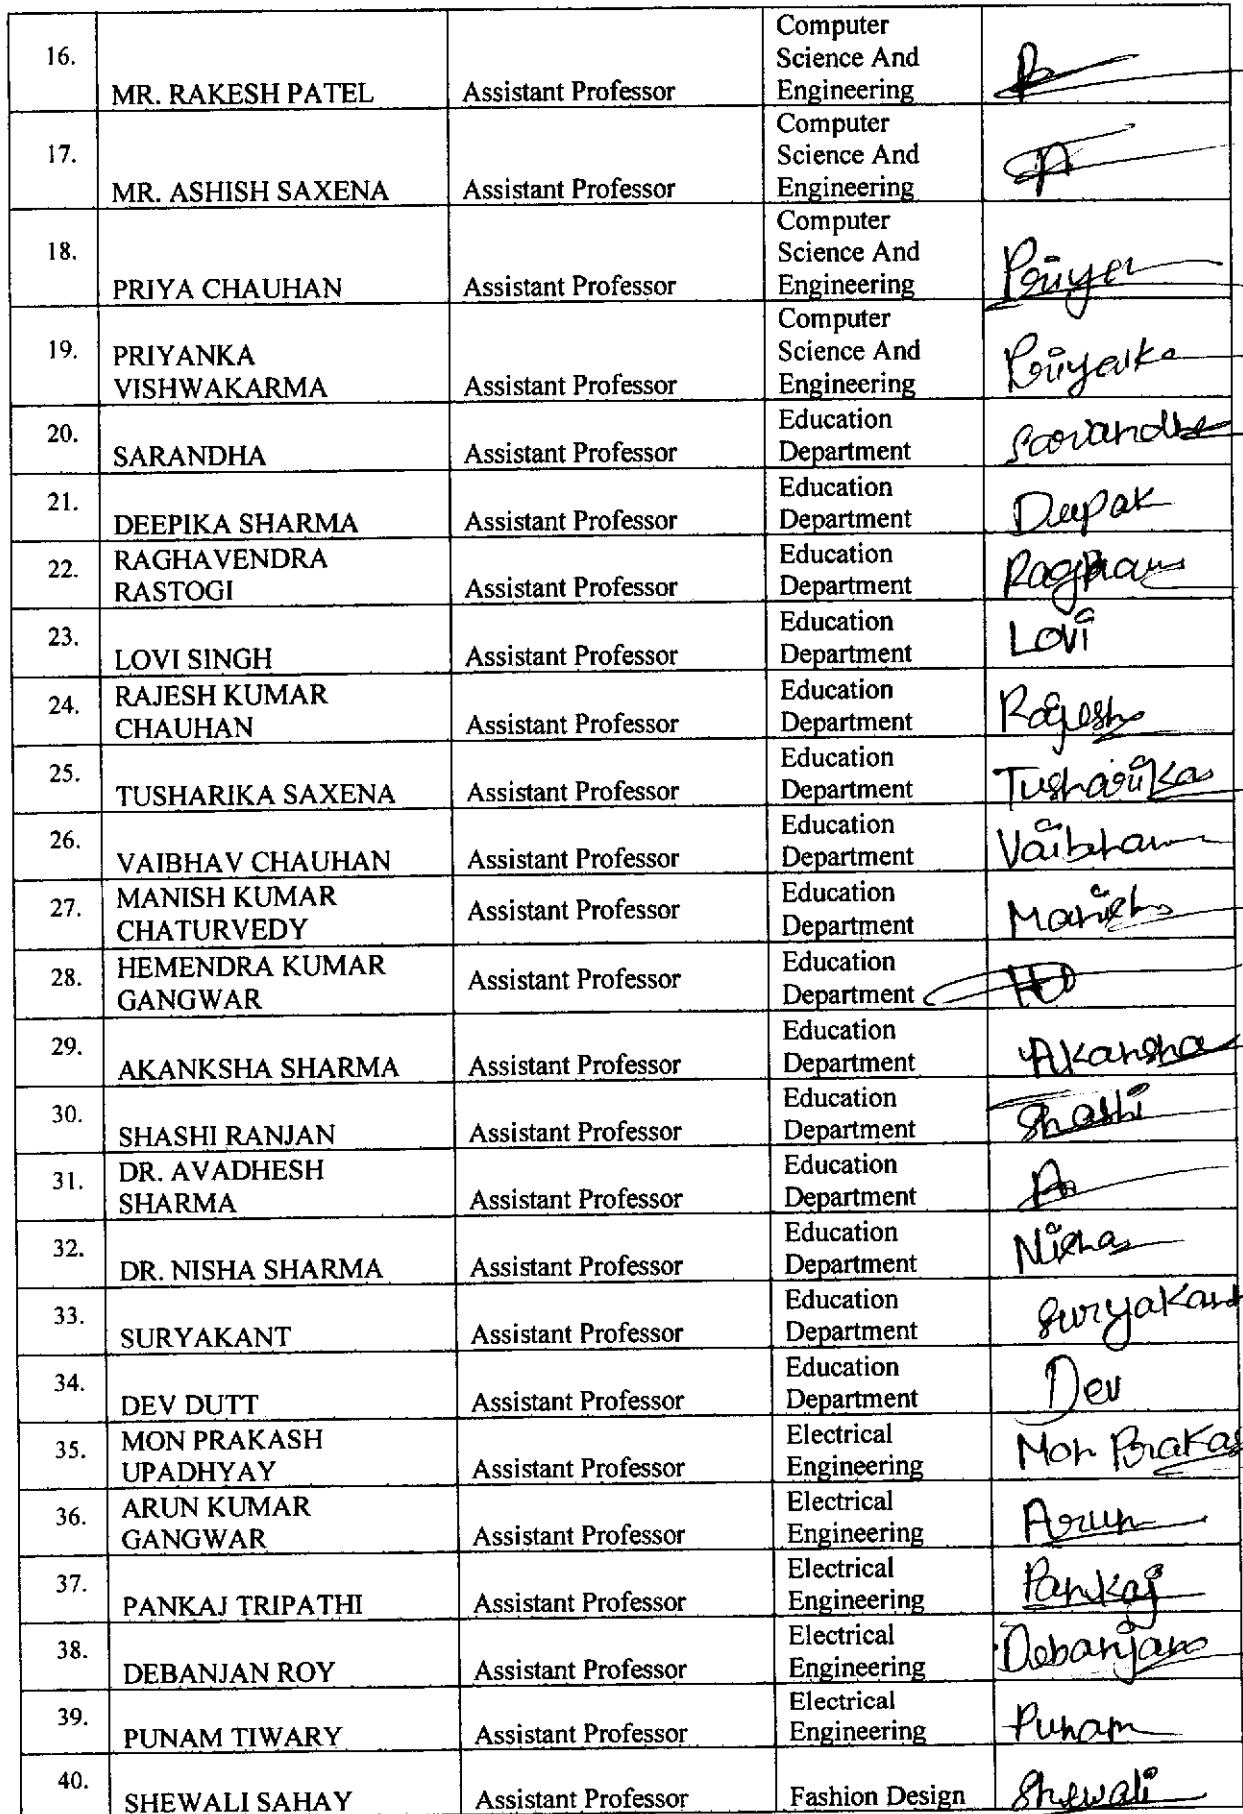 16.
MR. RAKESH PATEL
Assistant Professor
Computer
Science And
Engineering
17.
MR. ASHISH SAXENA
Assistant Professor
Computer
Science And
Engineering
18.
PRIYA CHAUHAN
Assistant Professor
Computer
Science And
Engineering
Priya
19.
PRIYANKA
VISHWAKARMA
Assistant Professor
Computer
Science And
Engineering
Priyanka
20.
SARANDHA
Assistant Professor
Education
Department
Sarandha
21.
DEEPIKA SHARMA
Assistant Professor
Education
Department
Deepak
22.
RAGHAVENDRA
RASTOGI
Assistant Professor
Education
Department
23.
LOVI SINGH
Assistant Professor
Education
Department
Lovi
24.
RAJESH KUMAR
CHAUHAN
Assistant Professor
Education
Department
Rajesh
25.
TUSHARIKA SAXENA
Assistant Professor
Education
Department
Tusharika
26.
VAIBHAV CHAUHAN
Assistant Professor
Education
Department
Vaibhav
27.
MANISH KUMAR
CHATURVEDY
Assistant Professor
Education
Department
Manish
28.
HEMENDRA KUMAR
GANGWAR
Assistant Professor
Education
Department
29.
AKANKSHA SHARMA
Assistant Professor
Education
Department
Akansha
30.
SHASHI RANJAN
Assistant Professor
Education
Department
Shashi
31.
DR. AVADHESH
SHARMA
Assistant Professor
Education
Department
32.
DR. NISHA SHARMA
Assistant Professor
Education
Department
Nisha
33.
SURYAKANT
Assistant Professor
Education
Department
Suryakant
34.
DEV DUTT
Assistant Professor
Education
Department
Dev
35.
MON PRAKASH
UPADHYAY
Assistant Professor
Electrical
Engineering
Mon Prakas
36.
ARUN KUMAR
GANGWAR
Assistant Professor
Electrical
Engineering
Arun
37.
PANKAJ TRIPATHI
Assistant Professor
Electrical
Engineering
Pankaj
38.
DEBANJAN ROY
Assistant Professor
Electrical
Engineering
Debanjan
39.
PUNAM TIWARY
Assistant Professor
Electrical
Engineering
Punam
40.
SHEWALI SAHAY
Assistant Professor
Fashion Design
Shewali